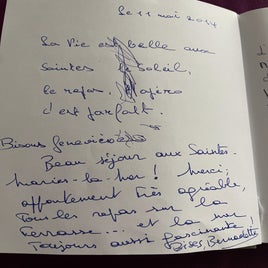 Le 11 mai 2014
La Vie est belle aux
Saintes Soleil,
le repos, apéro
c'est parfait.
Bisous Geneviève
Beau séjour aux Saintes-
maries-la-mer! Merci;
appartement très agréable,
Tous les repas sur la
Terrasse... et la mer,
Toujours aussi fascinante!
Bises, Bernadette